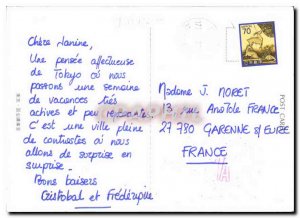 Chère Janine,
Une pensée affectueuse
de Tokyo où nous
passons une semaine
de vacances très
actives et peu reposante!
C'est une ville pleine
de contrastes où nous
allons de surprise en
surprise.
Bons baisers
Cristobal et Frédérique
70
POST CARD
Madame J. MORET
13 rue Anatole FRANCE
27 780 GARENNE S/EURE
FRANCE